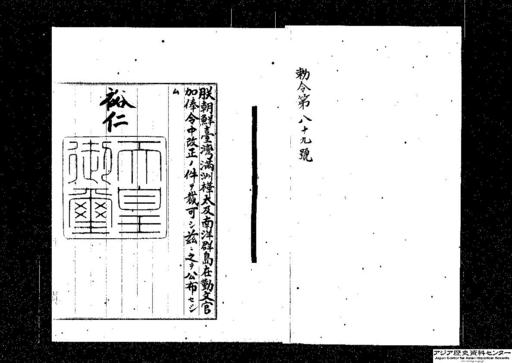 勅令第八十九號
朕朝鮮臺灣滿洲樺太及南洋群島在勤文官
加俸令中改正ノ件ヲ裁可シ茲ニ之ヲ公布セシ
ム
裕仁
天皇
御璽
アジア歴史資料センター
Japan Center for Asian Historical Records